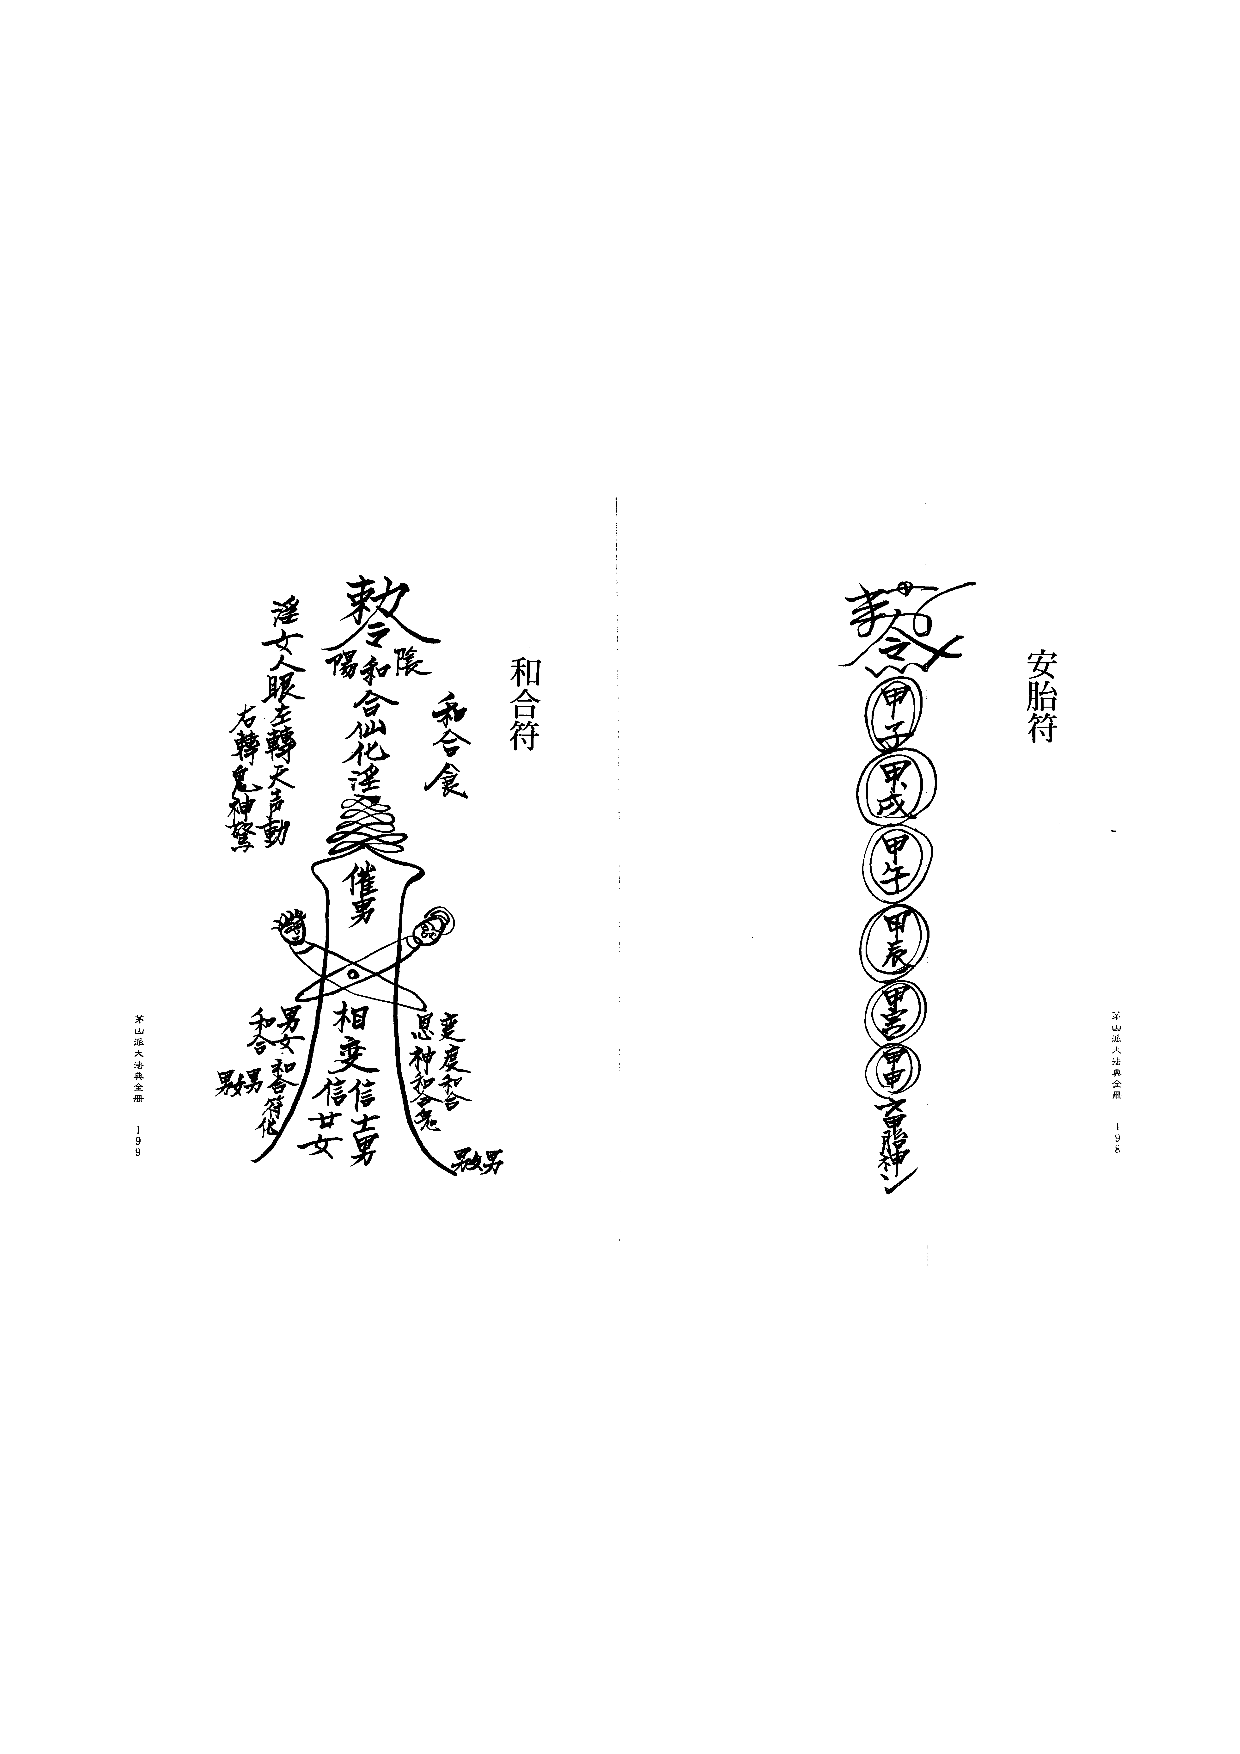 安胎符
敕令
甲子
甲戌
甲午
甲辰
甲寅
甲申
六甲胎神
茅山派大法典全冊 198
和合符
敕令
陰
陽
和合仙化淫
和合食
淫女人眼左轉天声動
右轉鬼神驚
催男
相变
信士男
信女
变度和合
恩神和合
男女男
男女和合符化
和合
男女男
茅山派大法典全冊 199